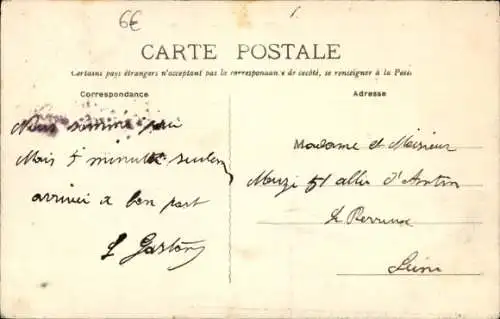 6€
CARTE POSTALE
Certains pays étrangers n'acceptant pas la correspondance de ce côté, se renseigner à la Poste
Correspondance
Adresse
Nous somme
Mais 5 minute seulem
arrivée a bon port
Gaston
Madame et Monsieur
51 allée d'Antin
Le Perreux
Seine